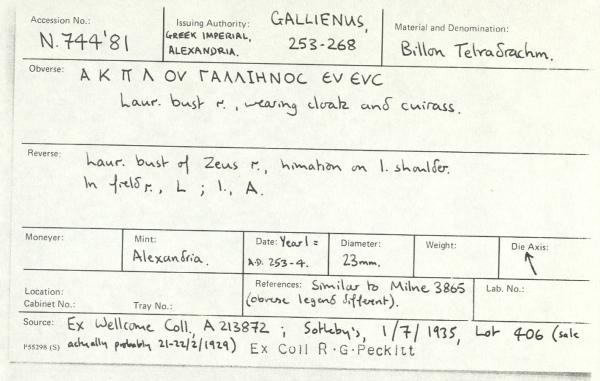 Accession No.:
N.744'81
Issuing Authority:
GREEK IMPERIAL,
ALEXANDRIA.
GALLIENUS,
253-268
Material and Denomination:
Billon Tetradrachm.
Obverse: Α Κ Π Λ ΟV ΓΑΛΛΙΗΝΟC ЄV ЄVC
Laur. bust r., wearing cloak and cuirass.
Reverse: Laur. bust of Zeus r., himation on l. shoulder.
In field r., L ; l., A.
Moneyer:
Mint:
Alexandria.
Date: Year 1 =
A.D. 253-4.
Diameter:
23mm.
Weight:
Die Axis:
↖
Location:
Cabinet No.: Tray No.:
References: Similar to Milne 3865
(obverse legend different).
Lab. No.:
Source: Ex Wellcome Coll, A 213872 ; Sotheby's, 1/7/1935, Lot 406 (sale
P55298 (S) actually probably 21-22/2/1929) Ex Coll R·G·Peckitt